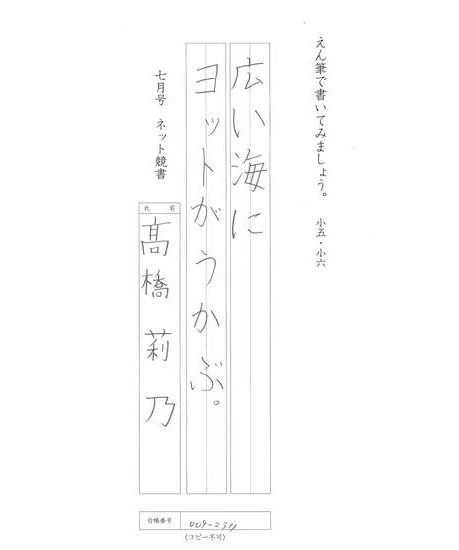 えん筆で書いてみましょう。 小五・小六
広い海に
ヨットがうかぶ。
七月号 ネット競書
氏名
髙橋莉乃
台帳番号 009-2311
(コピー不可)